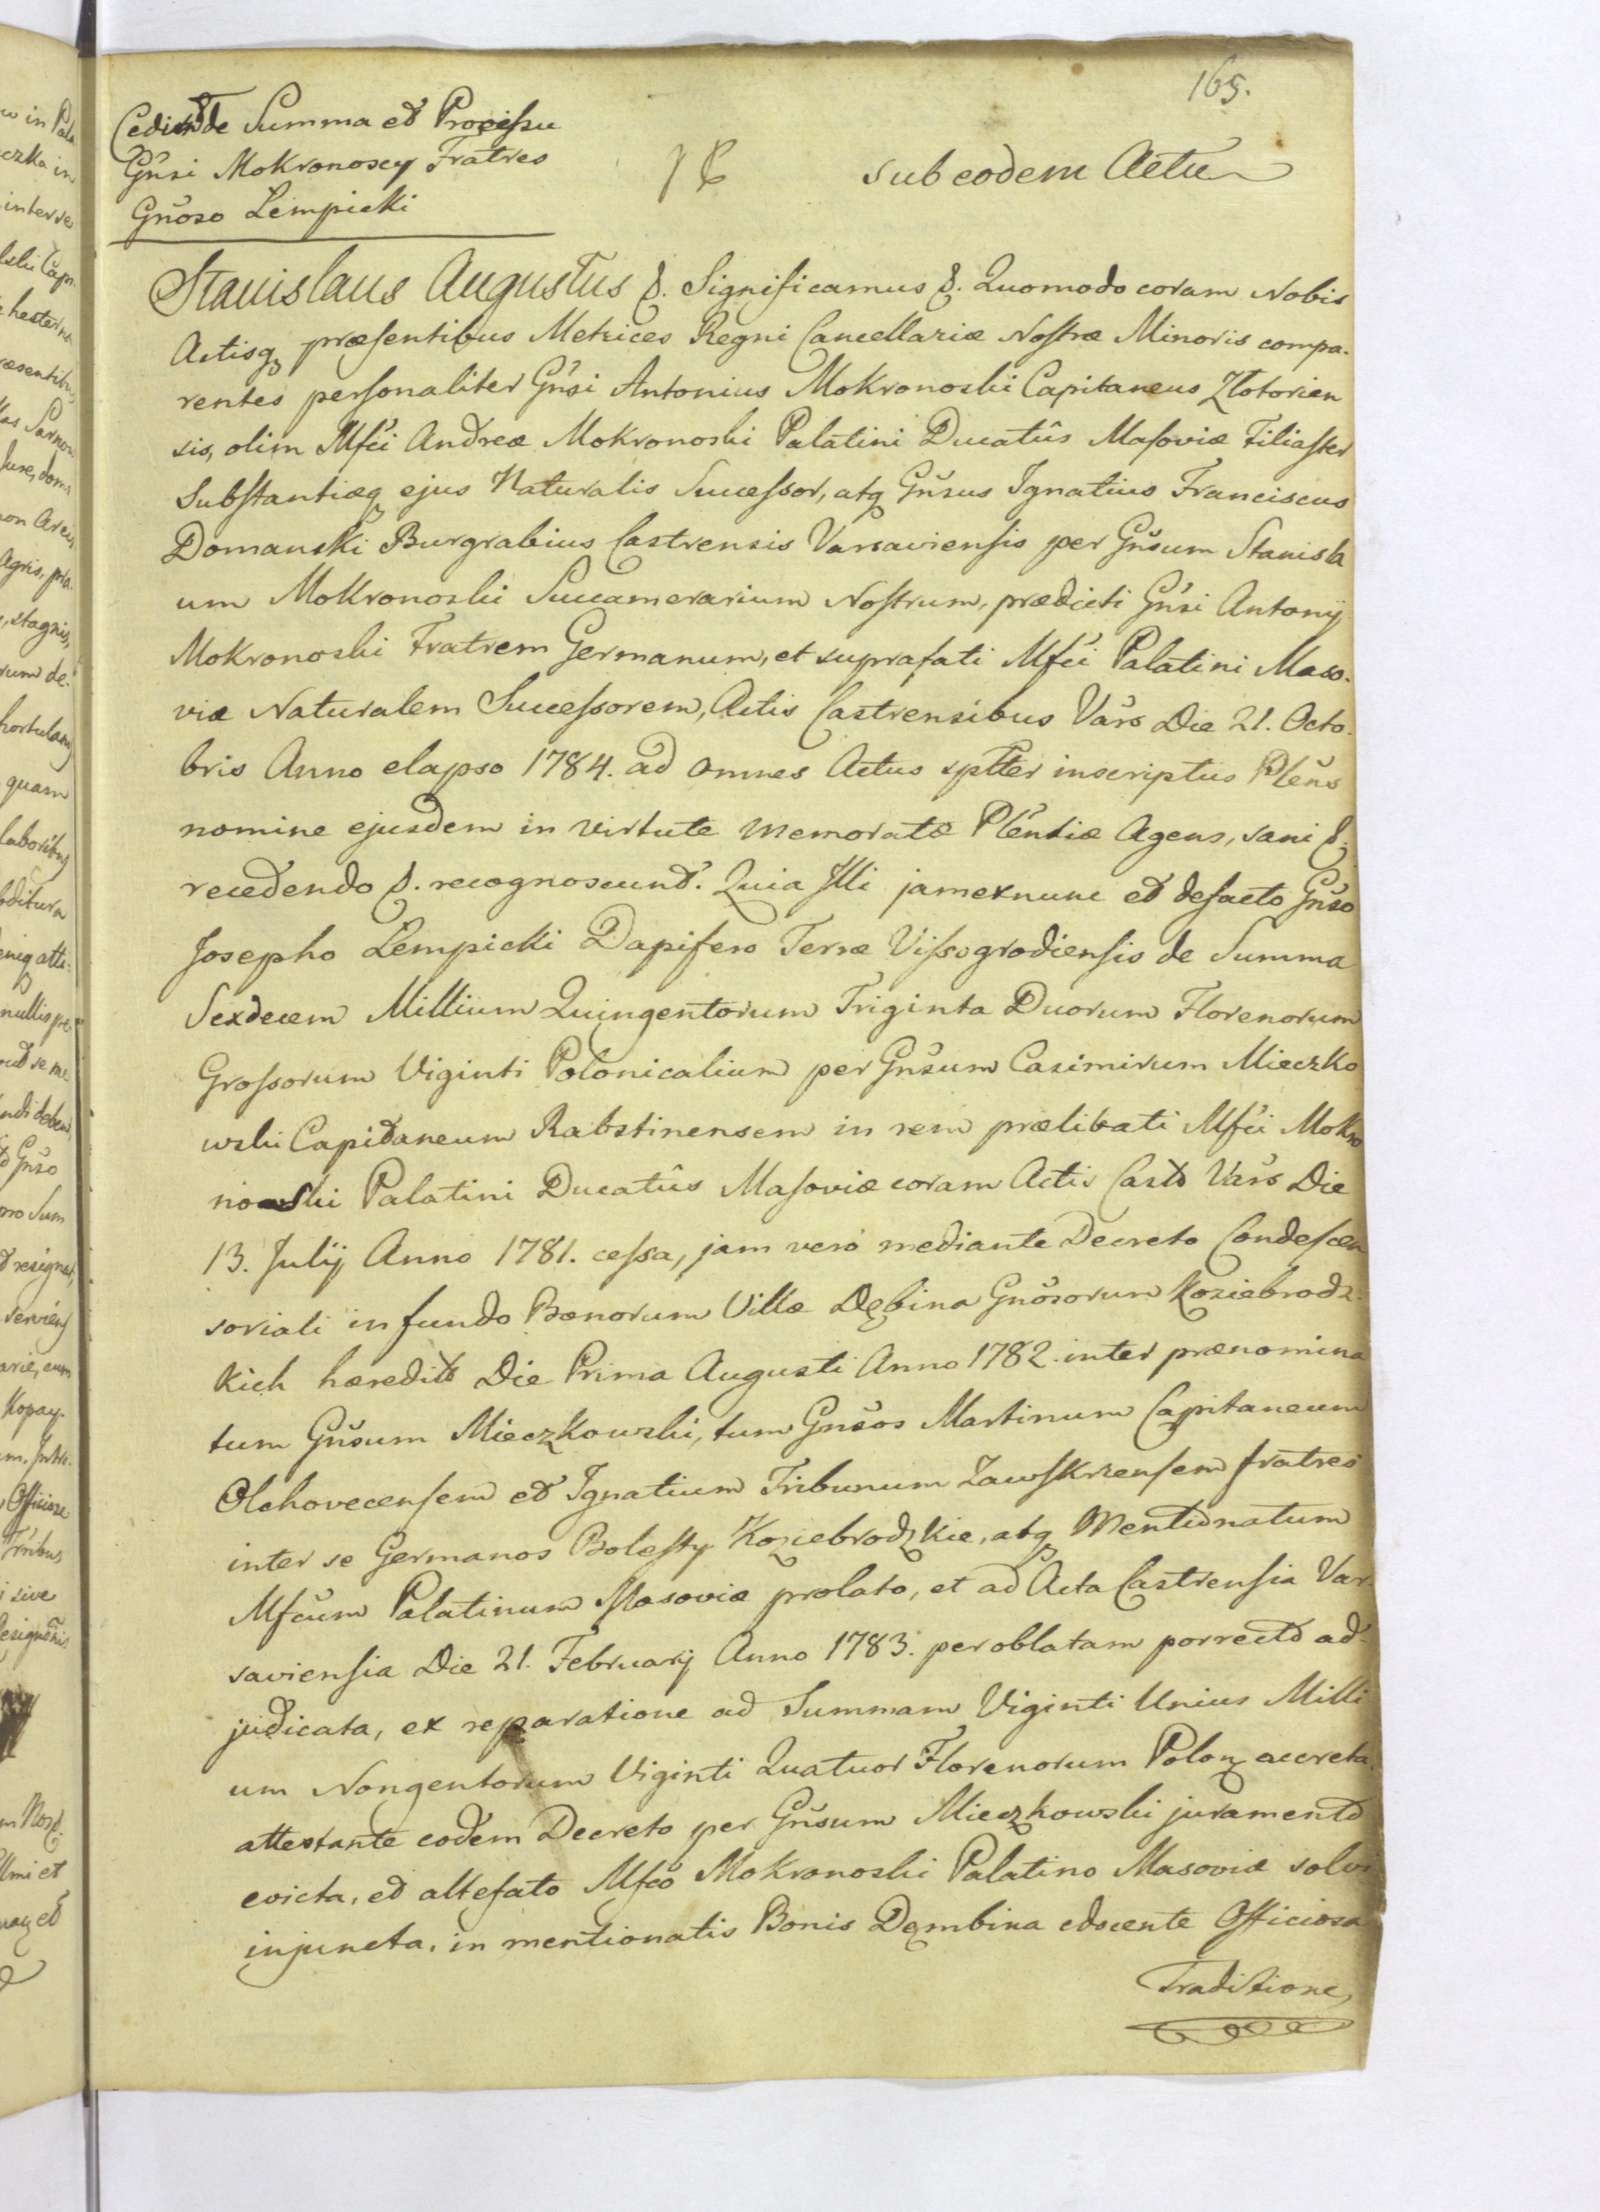 165.
Cedunt de Summa et Processu
Gn̄si Mokronoscy Fratres
Gn̄oso Łempicki
sub eodem Actu
Stanislaus Augustus &. Significamus &. Quomodo coram Nobis
Actisq præsentibus Metrices Regni Cancellariæ Nostræ Minoris compa-
rentes personaliter Gn̄si Antonius Mokronoski Capitaneus Złotorien
sis, olim Mfci Andreæ Mokronoski Palatini Ducatûs Masoviæ Filiaster
Substantiæq ejus Naturalis Successor, atq Gn̄sus Ignatius Franciscus
Domanski Burgrabius Castrensis Varsaviensis per Gn̄sum Stanisla
um Mokronoski Succamerarium Nostrum, prædicti Gn̄si Antonij
Mokronoski Fratrem Germanum, et suprafati Mfci Palatini Maso-
viæ Naturalem Successorem, Actis Castrensibus Vars Die 21. Octo-
bris Anno elapso 1784. ad omnes Actus spltter inscriptus Plēns
nomine ejusdem in virtute memoratæ Pleñtiæ Agens, sani &.
recedendo &. recognoscunt. Quia Illi jam ex nunc et de facto Gn̄so
Josepho Łempicki Dapifero Terræ Vissogrodiensis de Summa
Sexdecem Millium Quingentorum Triginta Duorum Florenorum
Grossorum Viginti Polonicalium per Gn̄sum Casimirum Mieczko
wski Capitaneum Rabstinensem in rem prælibati Mfci Mokro
nowski Palatini Ducatûs Masoviæ coram Actis Castr Vars Die
13. Julij Anno 1781. cessa, jam verò mediante Decreto Condescen
soriali in fundo Bonorum Villæ Dębina Gn̄osorum Koziebrodz-
kich hæredit Die Prima Augusti Anno 1782. inter prænomina
tum Gn̄sum Mieczkowski, tum Gn̄sos Martinum Capitaneum
Olchovecensem et Ignatium Tribunum Zawskrzensem fratres
inter se Germanos Bolesty Koziebrodzkie, atq Mentionatum
Mfcum Palatinum Masoviæ prolato, et ad Acta Castrensia Var-
saviensia Die 21. Februarij Anno 1783. per oblatam porrecto ad-
judicata, ex reparatione ad Summam Viginti Unius Milli
um Nongentorum Viginti Quatuor Florenorum Polon accreta
attestante eodem Decreto per Gn̄sum Mieczkowski juramento
evicta, et altefato Mfco Mokronoski Palatino Masoviæ solvi
injuncta, in mentionatis Bonis Dembina edocente Officiosa
Traditione,